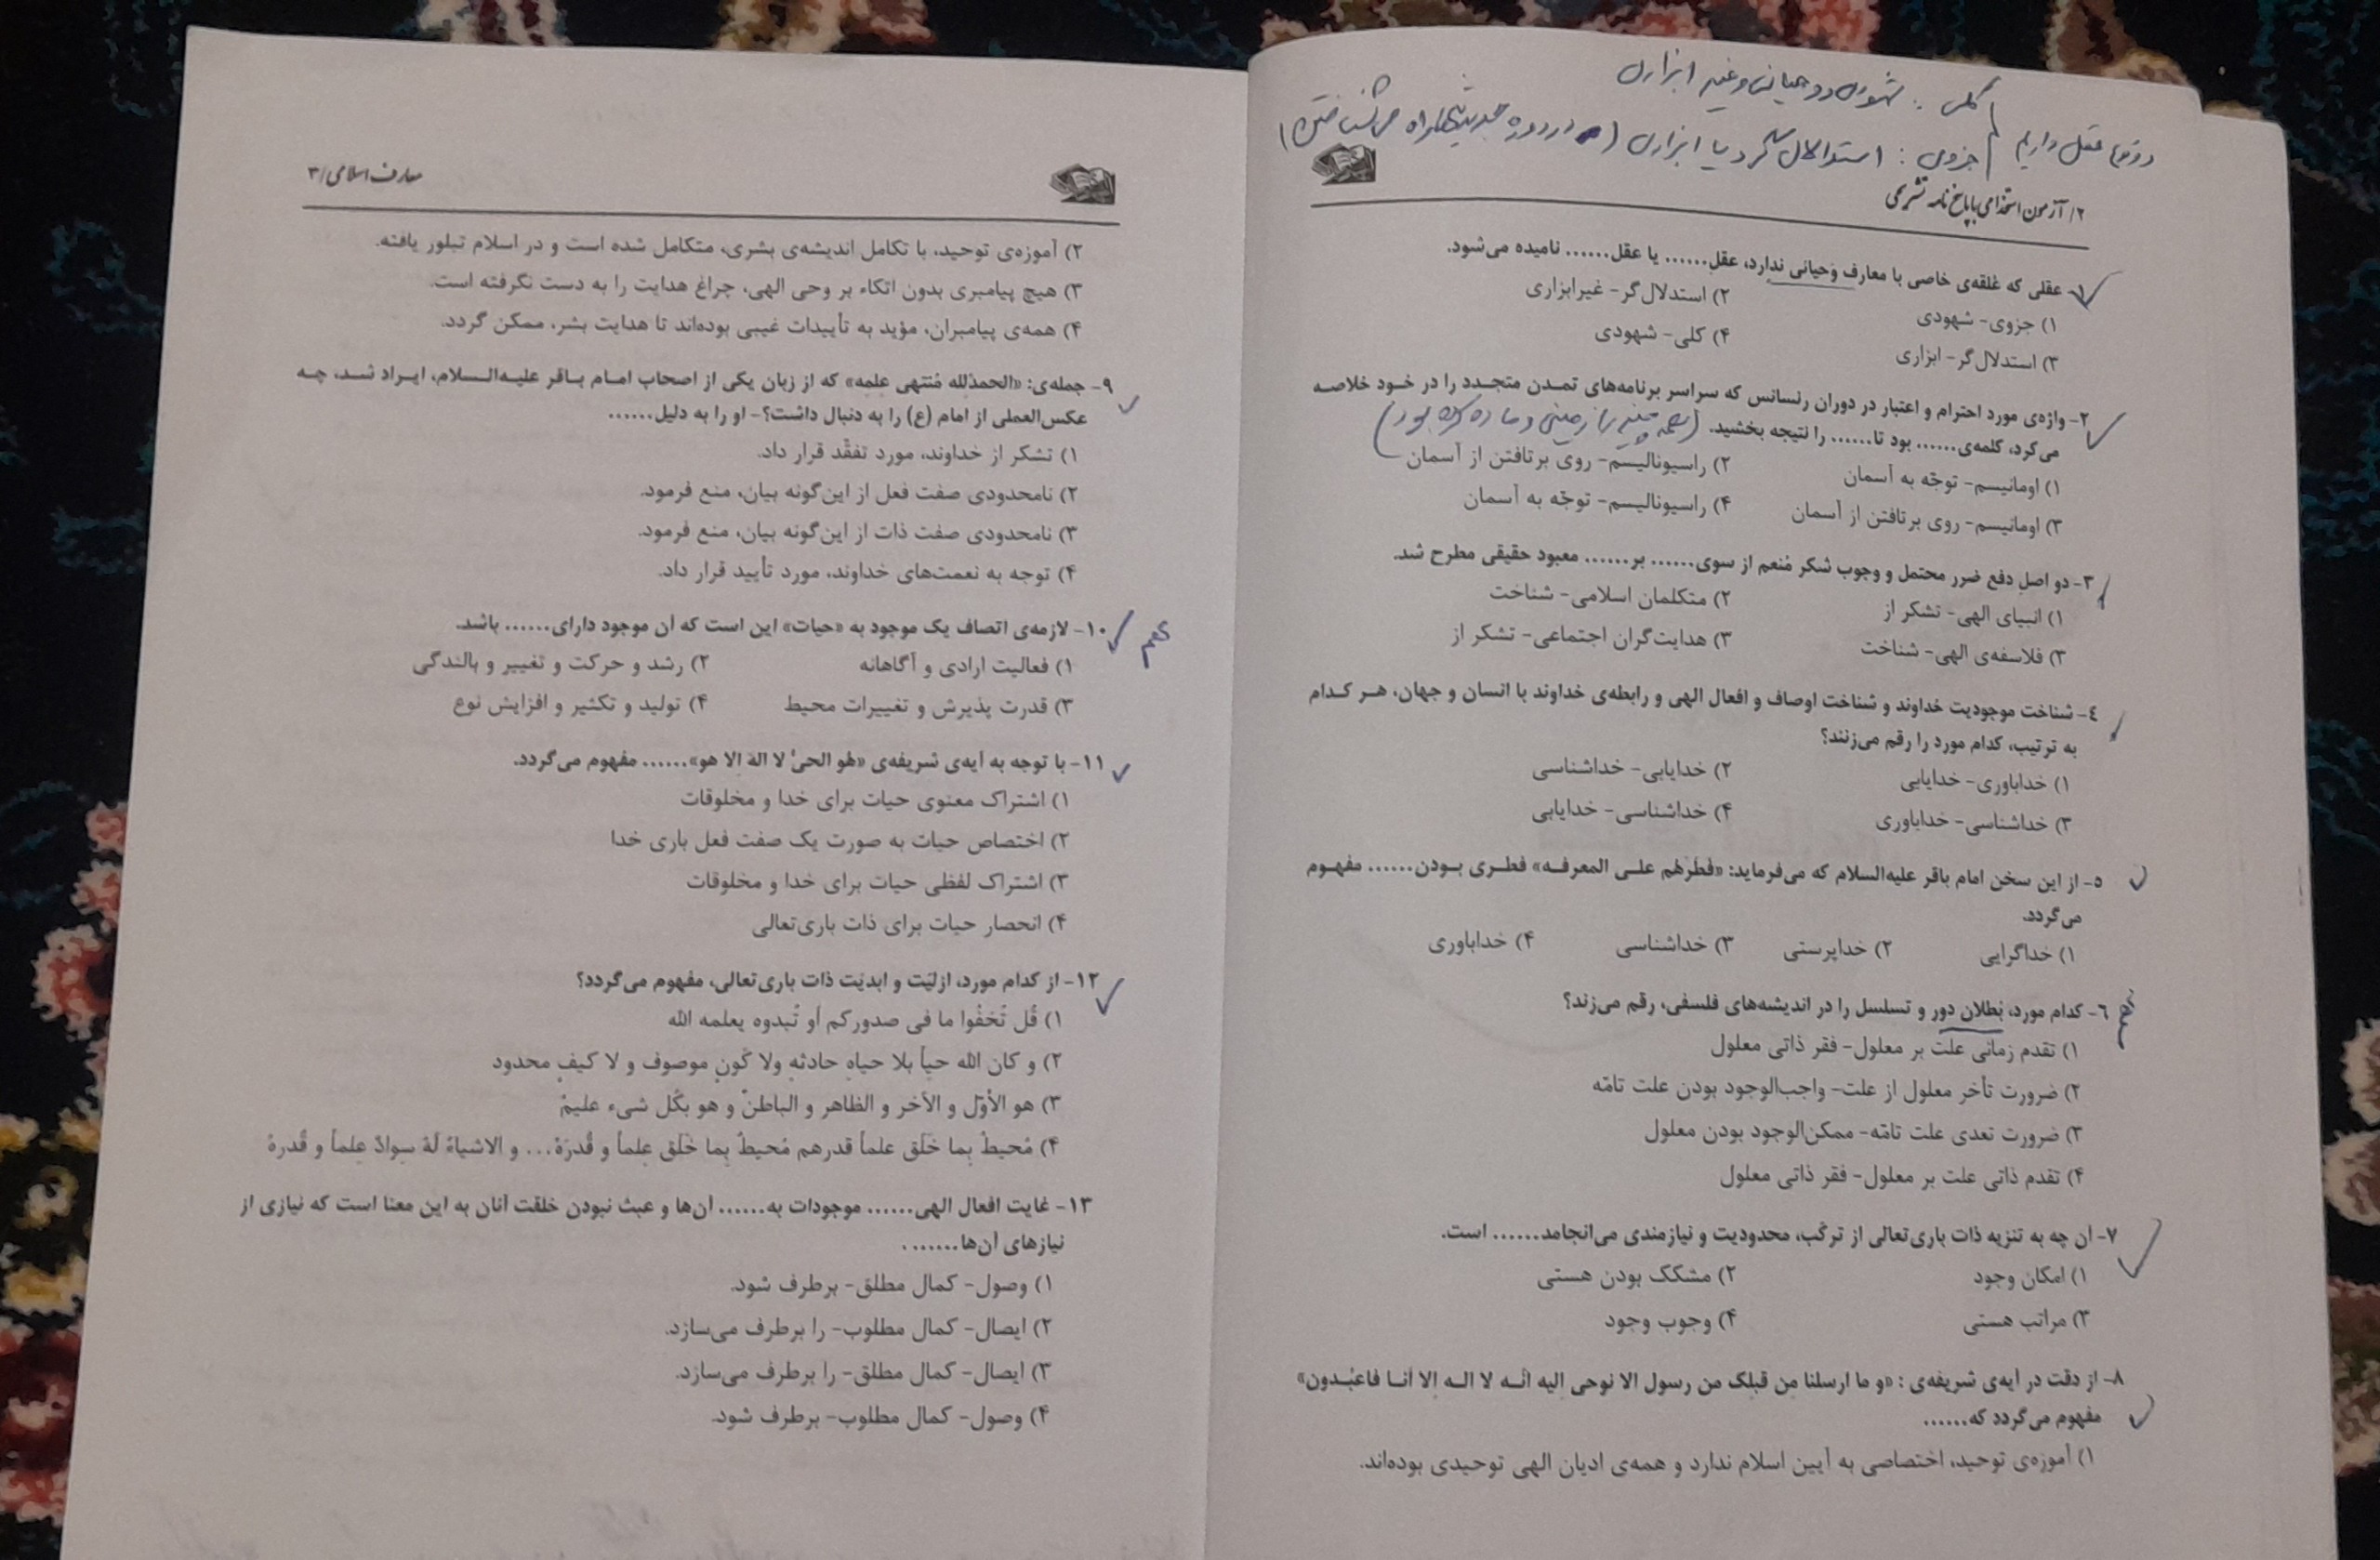 کلی : شهودی و وحیانی و غیر ابزاری
دو نوع عقل داریم
جزوی : استدلال گر و یا ابزاری (در دوره جدید تنها راه می شناختن)
۲/ آزمون استخدامی با پاسخ نامه تشریحی
۱- عقلی که عُلقه‌ی خاصی با معارف وَحیانی ندارد، عقلِ...... یا عقل...... نامیده می‌شود.
۱) جزوی- شهودی ۲) استدلال‌گر- غیرابزاری
۳) استدلال‌گر- ابزاری ۴) کلی- شهودی
۲- واژه‌ی مورد احترام و اعتبار در دوران رنسانس که سراسر برنامه‌های تمـدن متجـدد را در خـود خلاصـه
می‌کرد، کلمه‌ی...... بود تا...... را نتیجه بخشید. (همه چیز را زمینی و ماده کرده بود)
۱) اومانیسم- توجّه به آسمان ۲) راسیونالیسم- روی برتافتن از آسمان
۳) اومانیسم- روی برتافتن از آسمان ۴) راسیونالیسم- توجّه به آسمان
۳- دو اصلِ دفع ضرر محتمل و وجوب شکر مُنعم از سوی...... بر...... معبود حقیقی مطرح شد.
۱) انبیای الهی- تشکر از ۲) متکلمان اسلامی- شناخت
۳) فلاسفه‌ی الهی- شناخت ۳) هدایت‌گران اجتماعی- تشکر از
۴- شناخت موجودیت خداوند و شناخت اوصاف و افعال الهی و رابطه‌ی خداوند با انسان و جهان، هـر کـدام
به ترتیب، کدام مورد را رقم می‌زنند؟
۱) خداباوری- خدایابی ۲) خدایابی- خداشناسی
۳) خداشناسی- خداباوری ۴) خداشناسی- خدایابی
۵- از این سخن امام باقر علیه‌السلام که می‌فرماید: «فَطَرَهُم علـی المعرفـه» فطـری بـودن...... مفهـوم
می‌گردد.
۱) خداگرایی ۲) خداپرستی ۳) خداشناسی ۴) خداباوری
۶- کدام مورد، بُطلان دور و تسلسل را در اندیشه‌های فلسفی، رقم می‌زند؟
۱) تقدم زمانی علت بر معلول- فقر ذاتی معلول
۲) ضرورت تأخر معلول از علت- واجب‌الوجود بودن علت تامّه
۳) ضرورت تعدی علت تامّه- ممکن‌الوجود بودن معلول
۴) تقدم ذاتی علت بر معلول- فقر ذاتی معلول
۷- آن چه به تنزیه ذات باری‌تعالی از ترکّب، محدودیت و نیازمندی می‌انجامد...... است.
۱) امکان وجود ۲) مشکک بودن هستی
۳) مراتب هستی ۴) وجوب وجود
۸- از دقت در آیه‌ی شریفه‌ی : «و ما ارسلنا مِن قبلِک من رسول الا نوحی اِلیه انَّـه لا الـه اِلا اَنـا فاعبُـدون»
مفهوم می‌گردد که......
۱) آموزه‌ی توحید، اختصاصی به آیین اسلام ندارد و همه‌ی ادیان الهی توحیدی بوده‌اند.
معارف اسلامی/۳
۲) آموزه‌ی توحید، با تکامل اندیشه‌ی بشری، متکامل شده است و در اسلام تبلور یافته.
۳) هیچ پیامبری بدون اتکاء بر وحی الهی، چراغ هدایت را به دست نگرفته است.
۴) همه‌ی پیامبران، مؤید به تأییدات غیبی بوده‌اند تا هدایت بشر، ممکن گردد.
۹- جمله‌ی: «الحمدُلِله مُنتهی علمِه» که از زبان یکی از اصحاب امـام بـاقر علیـه‌السـلام، ایـراد شـد، چـه
عکس‌العملی از امام (ع) را به دنبال داشت؟- او را به دلیل......
۱) تشکر از خداوند، مورد تفقّد قرار داد.
۲) نامحدودی صفت فعل از این‌گونه بیان، منع فرمود.
۳) نامحدودی صفت ذات از این‌گونه بیان، منع فرمود.
۴) توجه به نعمت‌های خداوند، مورد تأیید قرار داد.
۱۰- لازمه‌ی اتصاف یک موجود به «حیات» این است که آن موجود دارای...... باشد.
مهم
۱) فعالیت ارادی و آگاهانه ۲) رشد و حرکت و تغییر و بالندگی
۳) قدرت پذیرش و تغییرات محیط ۴) تولید و تکثیر و افزایش نوع
۱۱- با توجه به آیه‌ی شریفه‌ی «هُو الحیُّ لا الهَ اِلا هو»...... مفهوم می‌گردد.
۱) اشتراک معنوی حیات برای خدا و مخلوقات
۲) اختصاص حیات به صورت یک صفت فعل باری خدا
۳) اشتراک لفظی حیات برای خدا و مخلوقات
۴) انحصار حیات برای ذات باری‌تعالی
۱۲- از کدام مورد، ازلیّت و ابدیّت ذات باری‌تعالی، مفهوم می‌گردد؟
۱) قُل تُخفُوا ما فی صدورکم أو تُبدوه یعلمه الله
۲) و کان الله حیاً بلا حیاهٍ حادثهٍ ولا کَونٍ موصوف و لا کیفٍ محدود
۳) هو الأوّل و الآخر و الظاهر و الباطنُ و هو بکُل شیء علیمُ
۴) مُحیطُ بِما خَلَق علماً قدرهم مُحیطُ بِما خَلَق عِلماً و قُدرَهً... و الاشیاءُ لَهُ سواءٌ عِلماً و قُدرهً
۱۳- غایت افعال الهی...... موجودات به...... آن‌ها و عبث نبودن خلقت آنان به این معنا است که نیازی از
نیازهای آن‌ها...... .
۱) وصول- کمال مطلق- برطرف شود.
۲) ایصال- کمال مطلوب- را برطرف می‌سازد.
۳) ایصال- کمال مطلق- را برطرف می‌سازد.
۴) وصول- کمال مطلوب- برطرف شود.